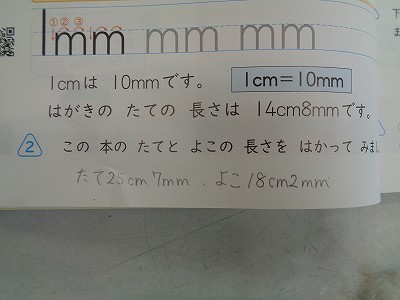 ①②③
1mm mm mm
1cmは 10mmです。 1cm=10mm
はがきの たての 長さは 14cm8mmです。
2 この 本の たてと よこの 長さを はかって みまし
たて25cm7mm、よこ18cm2mm